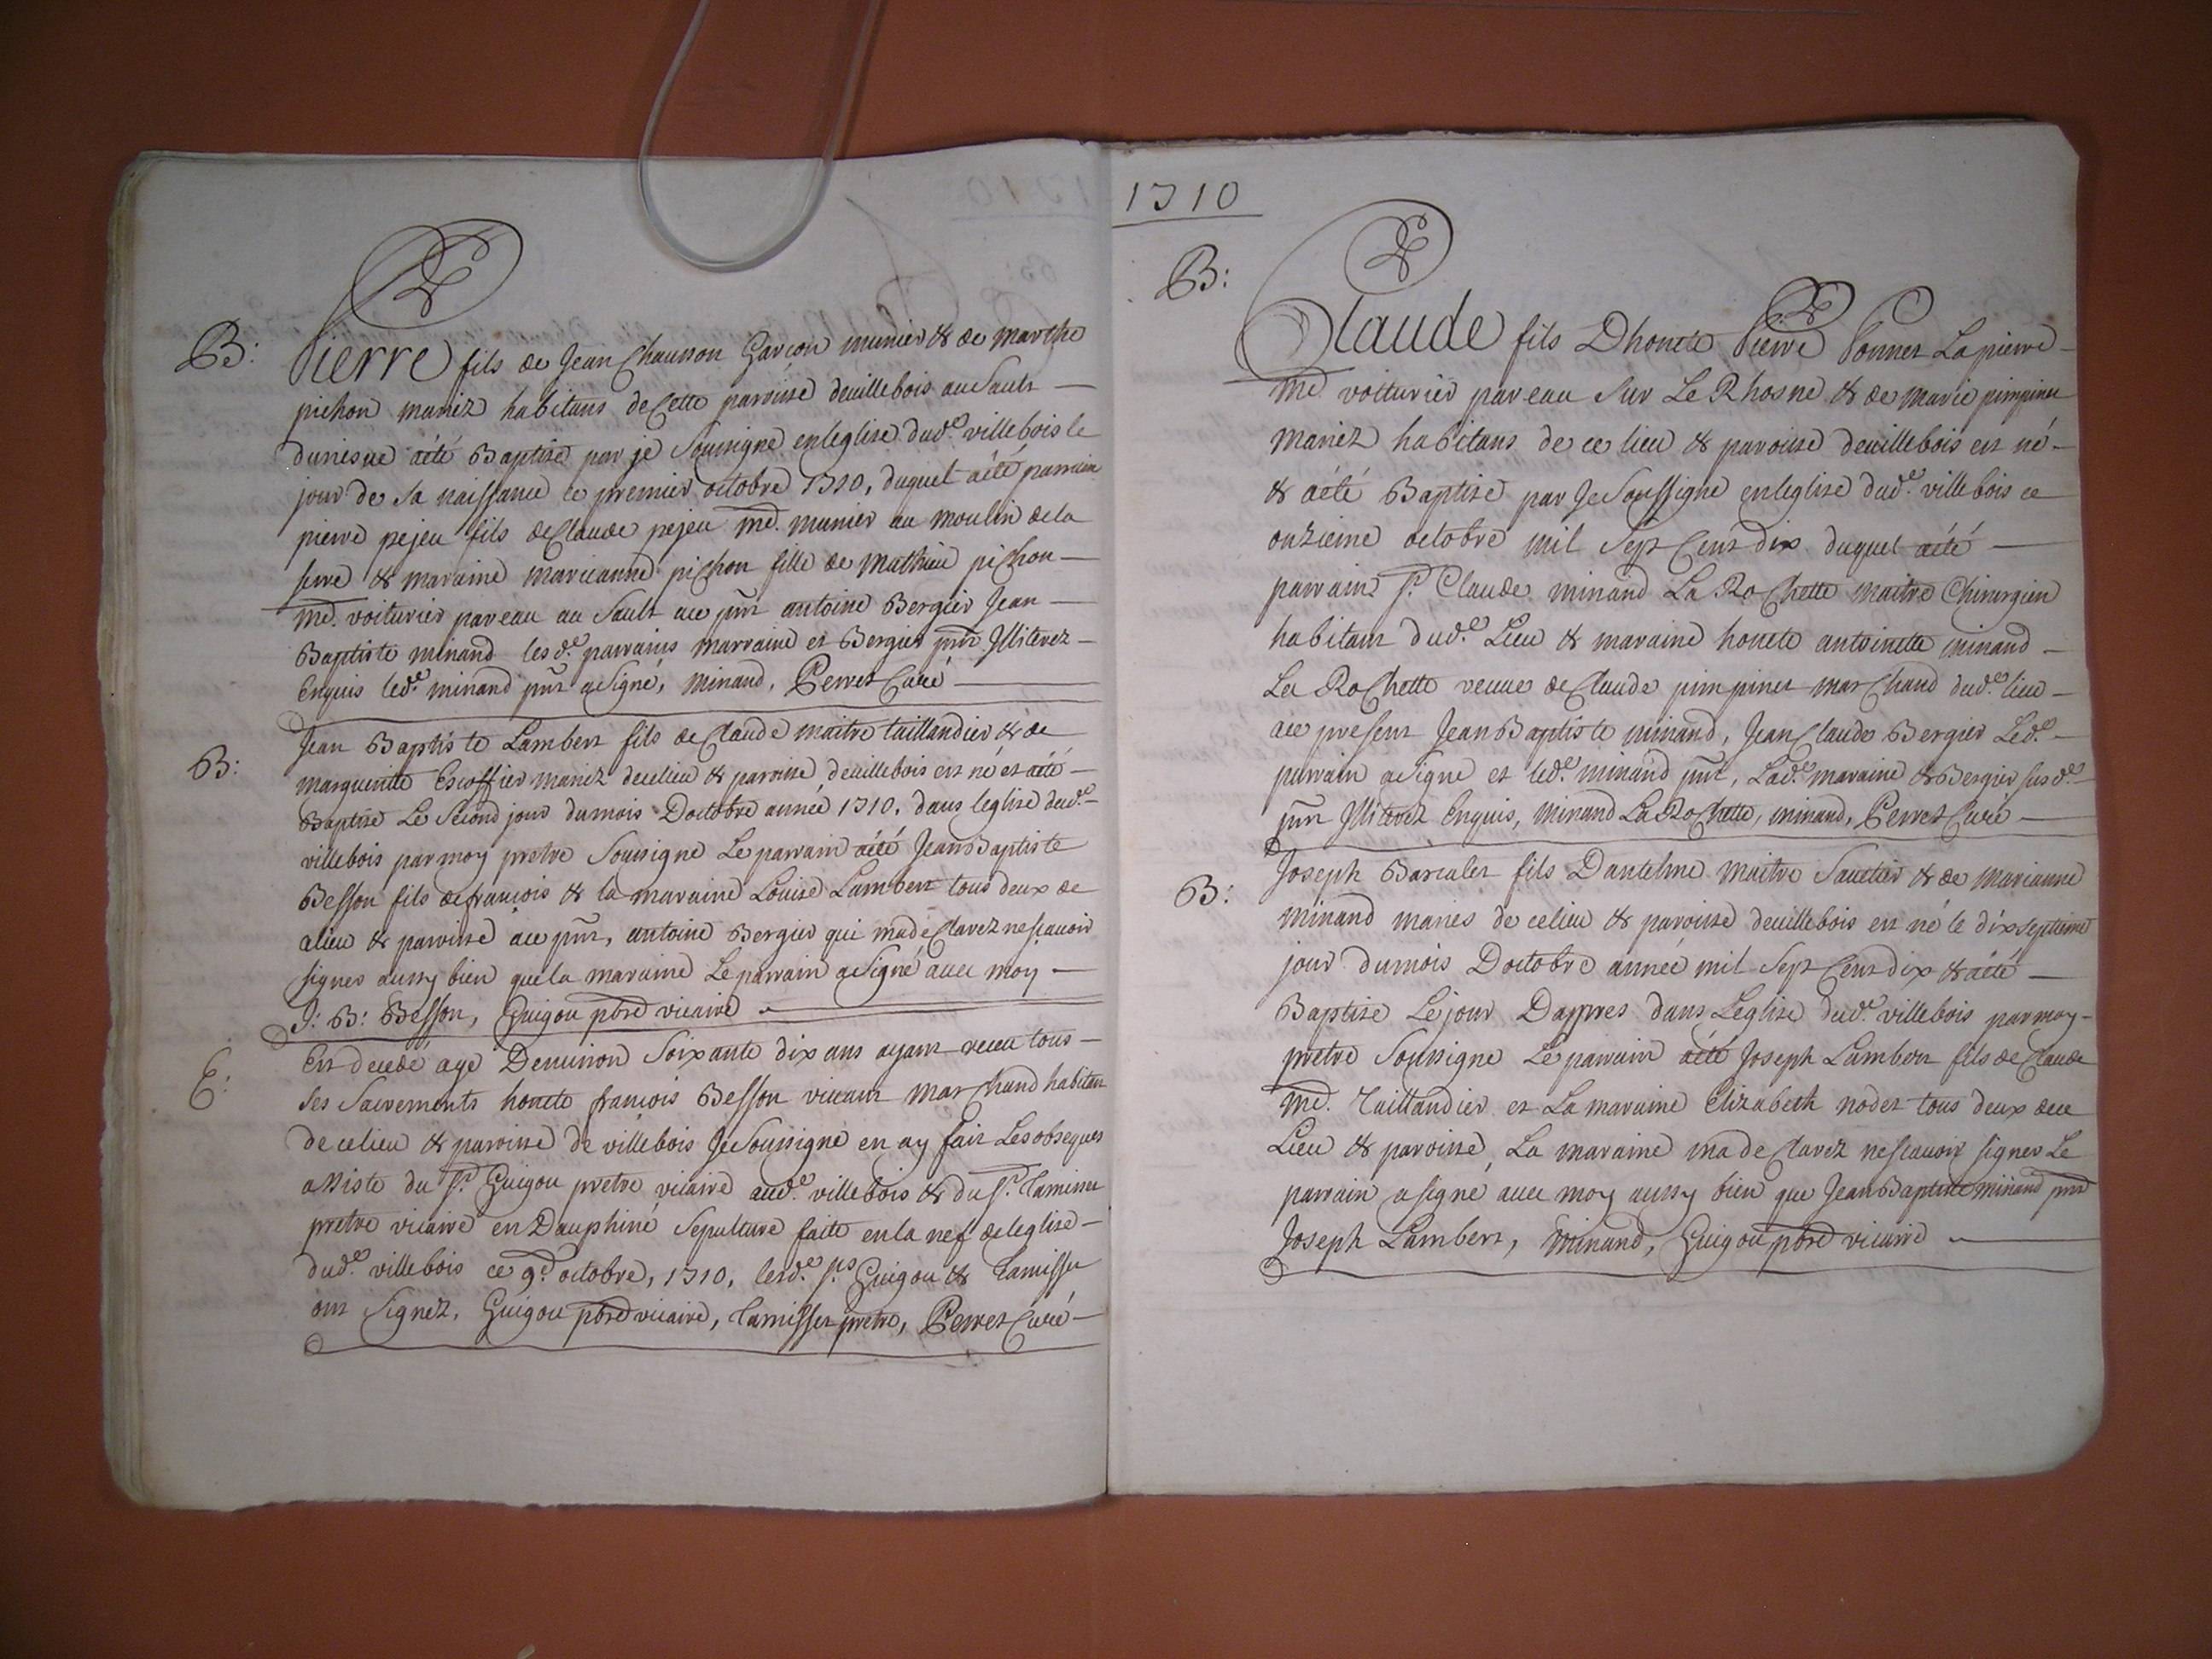 B: Pierre fils de Jean Chausson Garcon munier & de marthe
pichon mariez habitans de Cette paroisse deuillebois au Sault
aété Baptisé par je Soussigné enleglise dud.e villebois le
jour de sa naissance ce premier octobre 1710, duquel aété parrain
pierre pejeu fils de Claude pejeu md. munier au moulin dela
serve & maraine marieanne pichon fille de Mathieu pichon
md. voiturier pareau au Sault ace pnt antoine Bergier Jean
Baptiste minand lesd.e parrains marraine et Bergier pnt Illiterez
Enquis led.e minand pnt asigné, minand, Perret Curé
B: Jean Baptiste Lambert fils de Claude maitre taillandier & de
marguerite Escoffier mariez decelieu & paroisse deuillebois est né et aété
Baptisé Le Second jour dumois Doctobre année 1710, dans leglise dud.e
villebois parmoy pretre Soussigné Le parrain aété JeanBaptiste
Besson fils defrancois & la maraine Louise Lambert tous deux de
celieu & paroisse ace pnt, antoine Bergier qui madeClarez nescauoir
signer aussy bien quela maraine Le parrain asigné auec moy
J: B: Besson, Guigou pbre vicaire
E: Est decedé agé Denuiron Soixante dix ans ayant receu tous
ses Sacrements honete francois Besson viuant marchand habitant
de celieu & paroisse de villebois Je Soussigné en ay fait Les obseques
assisté du Sr. Guigou pretre vicaire aud.e villebois & du Sr. Tamisse
pretre vicaire en Dauphiné Sepulture faite en la nef de leglise
dud.e villebois ce 9.e octobre, 1710, lesd.e srs Guigou & Tamisse
ont Signez, Guigou pbre vicaire, Tamisset pretre, Perret Curé
1710
B: Claude fils Dhonete Pierre Ponnet Lapierre
md. voiturier pareau sur Le Rhosne & de Marie pimpinet
mariez habitans de ce lieu & paroisse deuillebois est né
& aété Baptisé par Je Soussigné enleglise dud.e villebois ce
onzieme octobre mil Sept Cent dix duquel aété
parrain Sr. Claude minand La Rochette maitre Chirurgien
habitant dud.e Lieu & maraine honete antoinette minand
La Rochette veuue de Claude pimpinet marchand dud.e lieu
ace present JeanBaptiste minand, Jean Claude Bergier Led.e
parrain asigné et led.e minand pnt, Lad.e maraine & Bergier susd.e
pnt Illiterez Enquis, minand LaRochette, minand, Perret Curé
B: Joseph Barcalet fils Dantelme maitre Sauetier & de marianne
minand mariés de celieu & paroisse deuillebois est né le dixseptieme
jour dumois Doctobre année mil Sept Cent dix & aété
Baptisé Lejour Dappres dans Leglise dud.e villebois parmoy
pretre Soussigné Le parrain aété Joseph Lambert fils de Claude
md. Taillandier et La maraine Elizabeth nodet tous deux dece
Lieu & paroisse, La maraine ma deClarez nescauoir signer Le
parrain asigné auec moy aussy bien que JeanBaptiste minand pnt
Joseph Lambert, minand, Guigou pbre vicaire